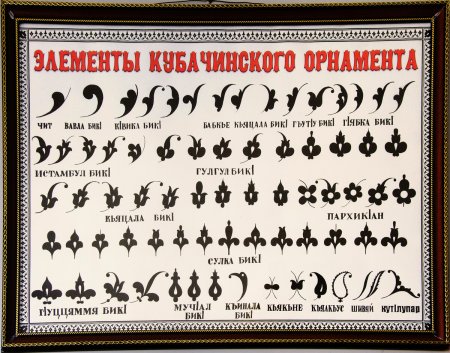 ЭЛЕМЕНТЫ КУБАЧИНСКОГО ОРНАМЕНТА
ЧИТ ВАВЛА БИКI КIВИКА БИКI БАБКЬЕ КЬЯЦАЛА БИКI ГЬУТIУ БИКI ГIЯБЖА БИКI
ИСТАМБУЛ БИКI ГУЛГУЛ БИКI
КЬЯЦАЛА БИКI ПАРХИКIАН
СУЛКА БИКI
ПУЦЦЯММЯ БИКI МУЧIАЛ БИКI КЪИППАЛА БИКI КЬЯКЬНЕ КЬЯЛКЬУС ШИВЯЙ КУТIУЛУПАР